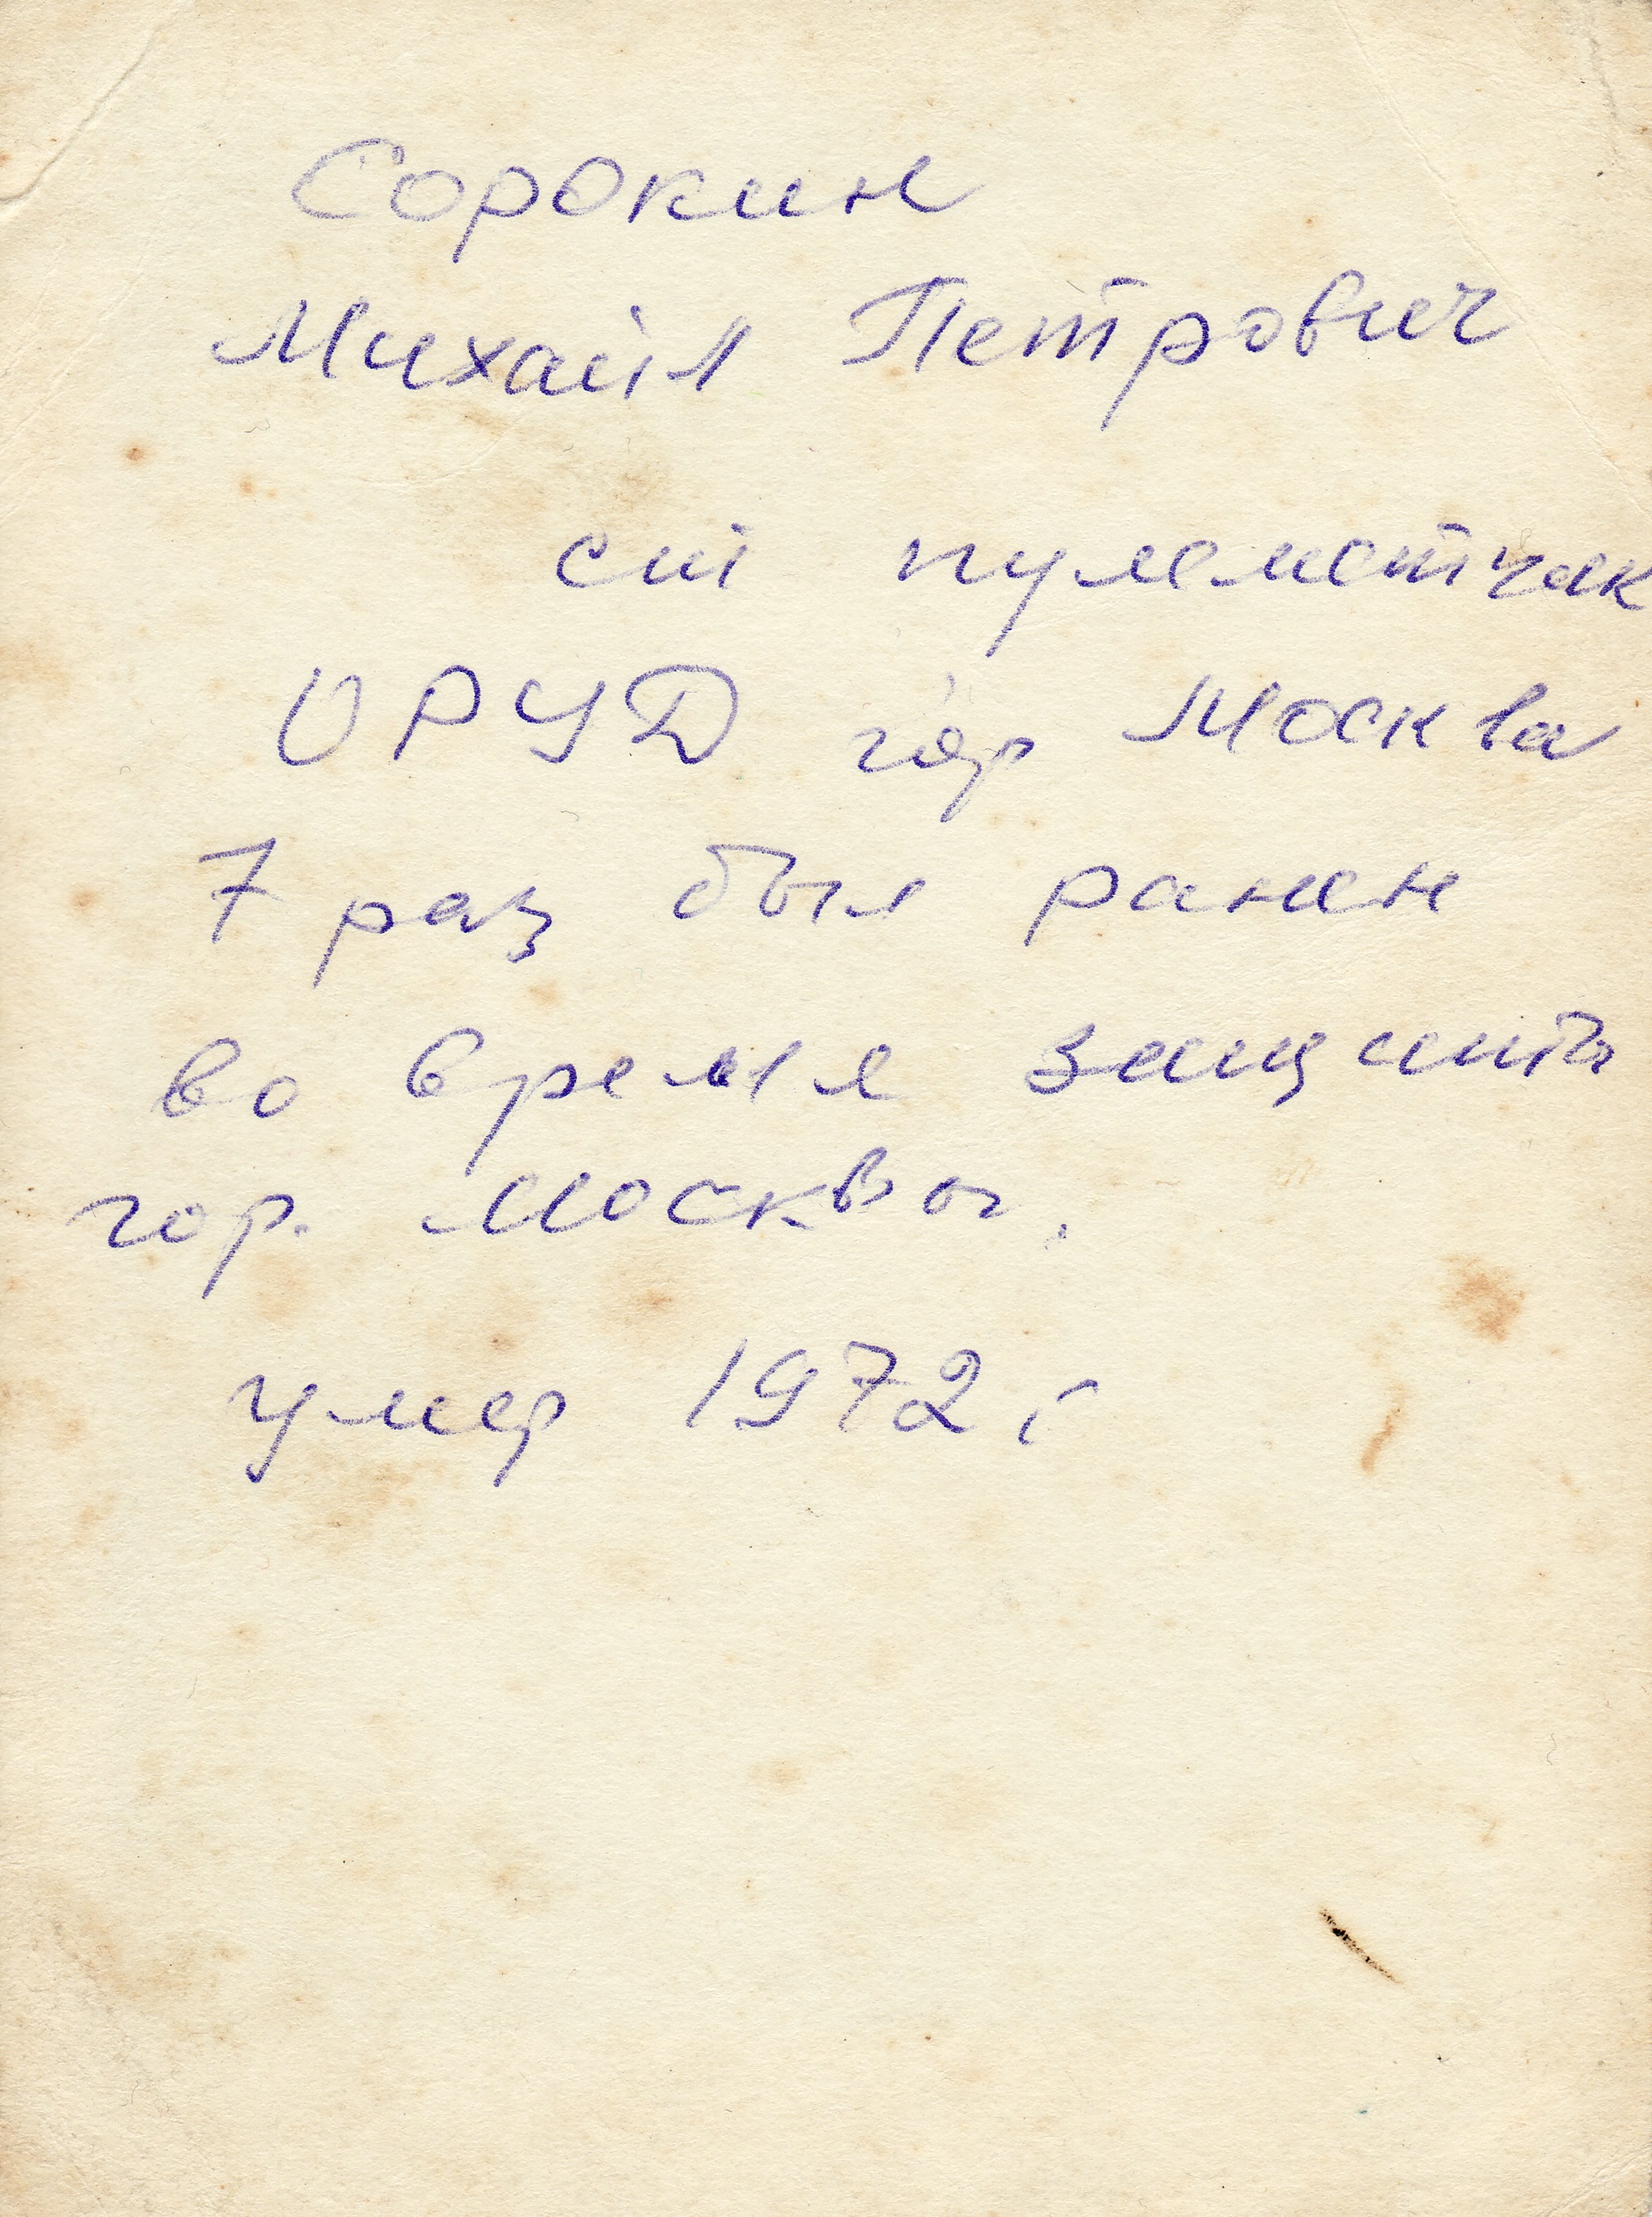 Сорокин
Михаил Петрович
ст пулеметчик
ОРУД гор Москва
7 раз был ранен
во время защиты
гор. Москвы.
умер 1972 г